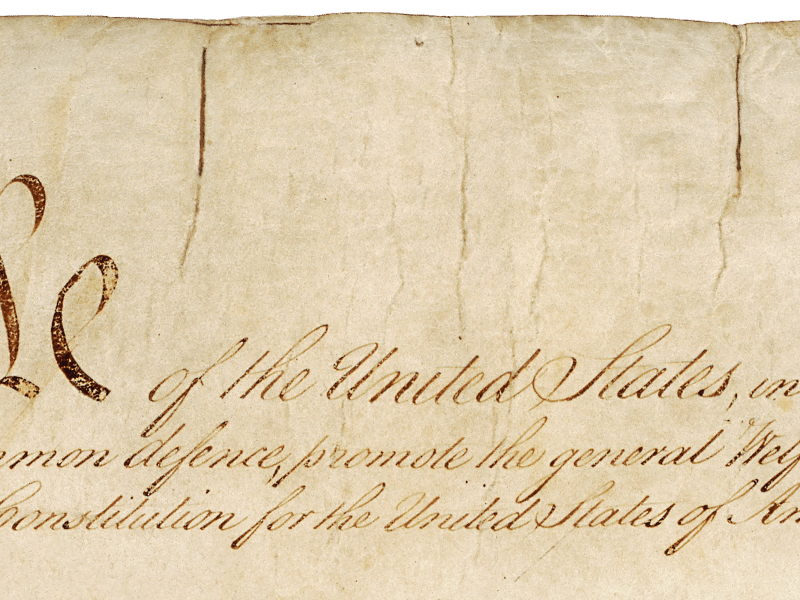 le of the United States, in
mmon defence, promote the general Welf
Constitution for the United States of Am